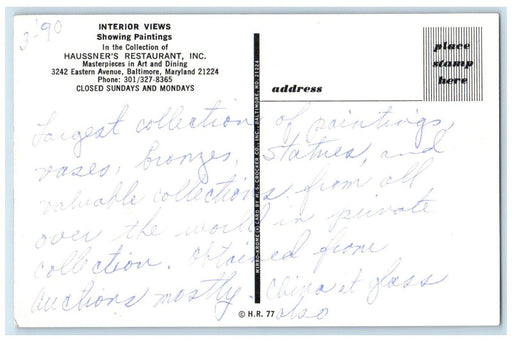 3-'90
INTERIOR VIEWS
Showing Paintings
In the Collection of
HAUSSNER'S RESTAURANT, INC.
Masterpieces in Art and Dining
3242 Eastern Avenue, Baltimore, Maryland 21224
Phone: 301/327-8365
CLOSED SUNDAYS AND MONDAYS
place
stamp
here
address
Largest collection of paintings,
vases, bronzes, statues, and
valuable collections from all
over the world in private
collection. Obtained from
auctions mostly. China et glass
also
MIRRO-KROME CARD BY H. S. CROCKER CO., INC., BALTIMORE, MD. 21224
© H.R. 77